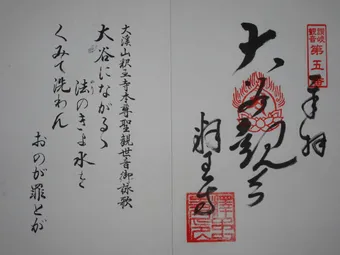 讃岐
観音
第五番
奉拝
大谷観音
釈王寺
大溪山釈王寺本尊聖観世音御詠歌
大谷にながるゝ
法のきよ水を
のり
くみて洗わん
おのが罪とが